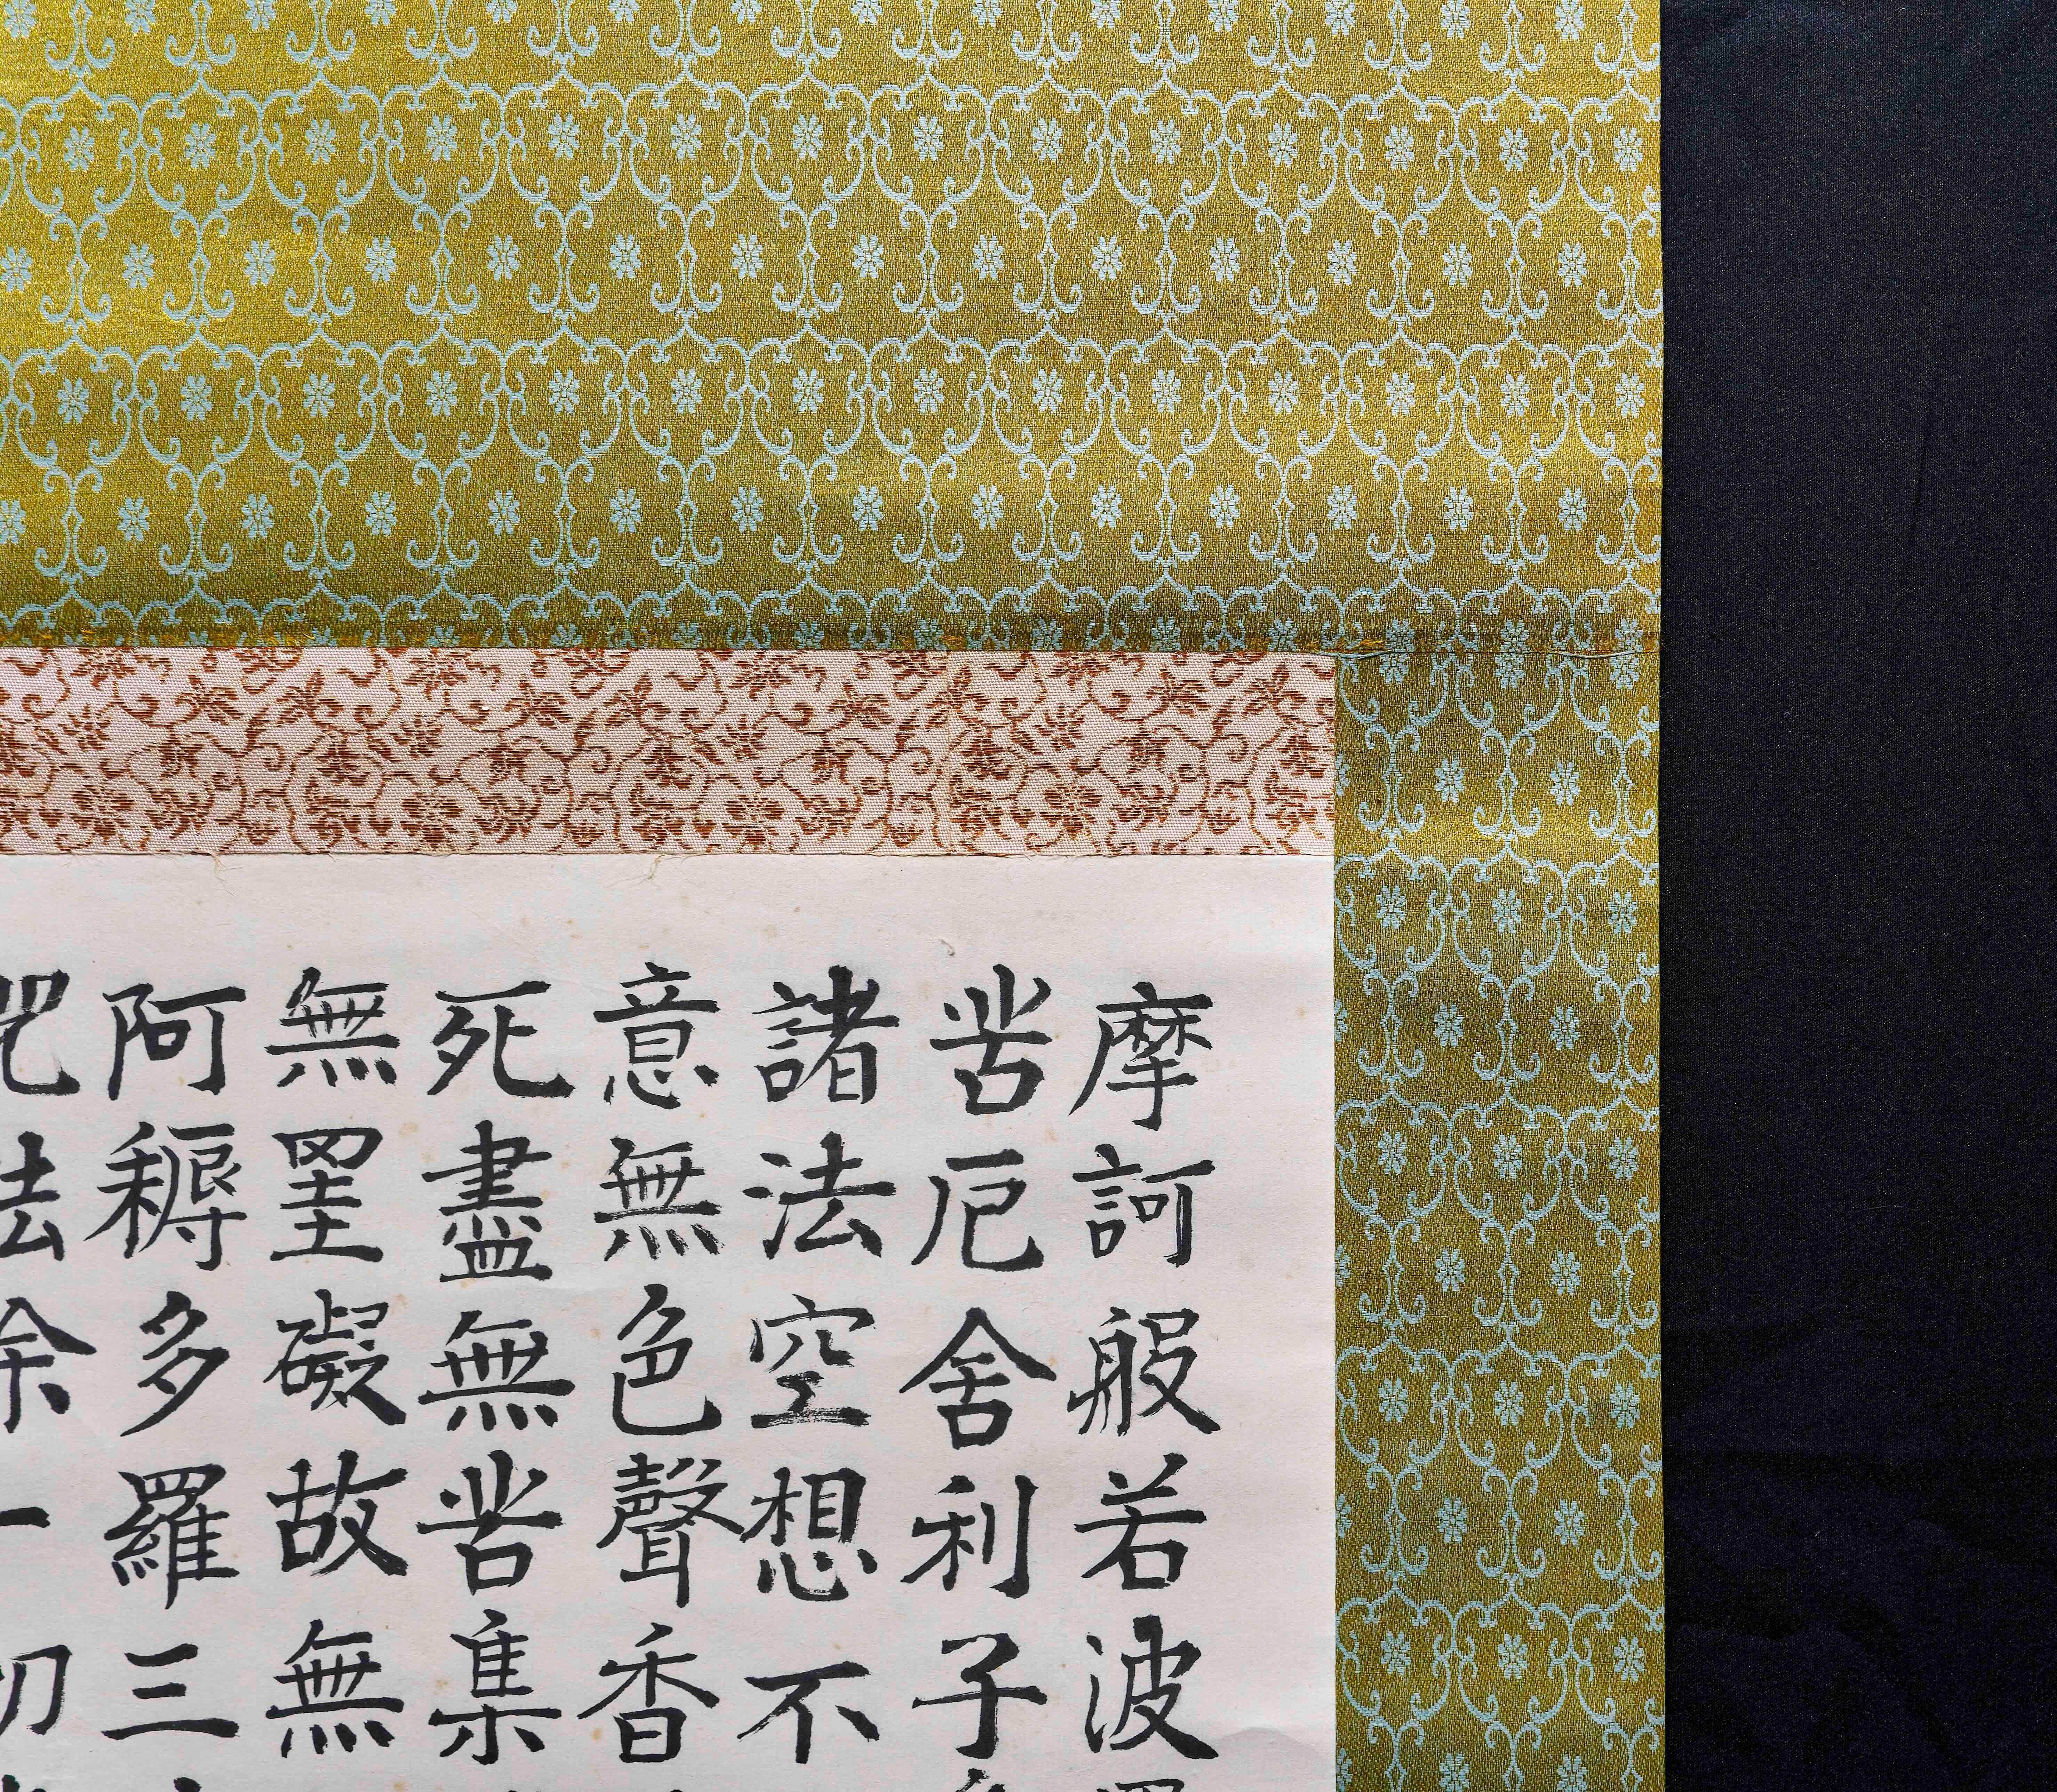 摩訶般若波
苦厄舍利子
諸法空想不
意無色聲香
死盡無苦集
無罣礙故無
阿耨多羅三